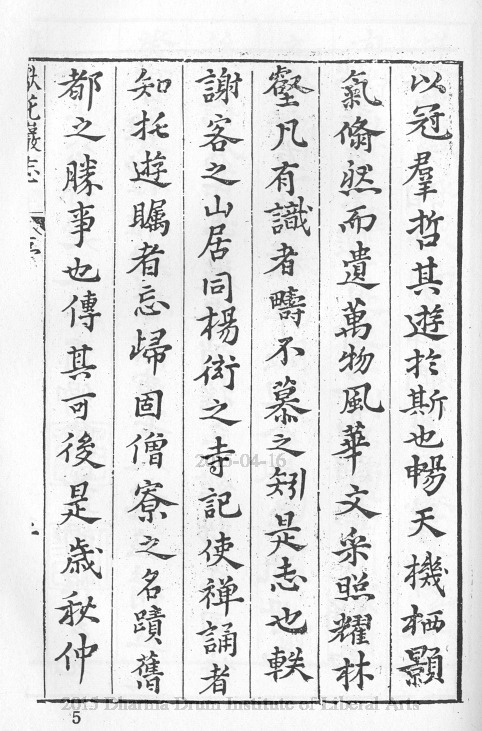 以冠羣哲其遊於斯也暢天機栖顥
氣翛然而遺萬物風華文采照耀林
壑凡有識者疇不慕之矧是志也軼
謝客之山居同楊衒之寺記使禅誦者
知托遊矚者忘歸固僧寮之名蹟舊
都之勝事也傳其可後是歳秋仲
獻花巖志
序
2015-04-16
2015 Dharma Drum Institute of Liberal Arts
5